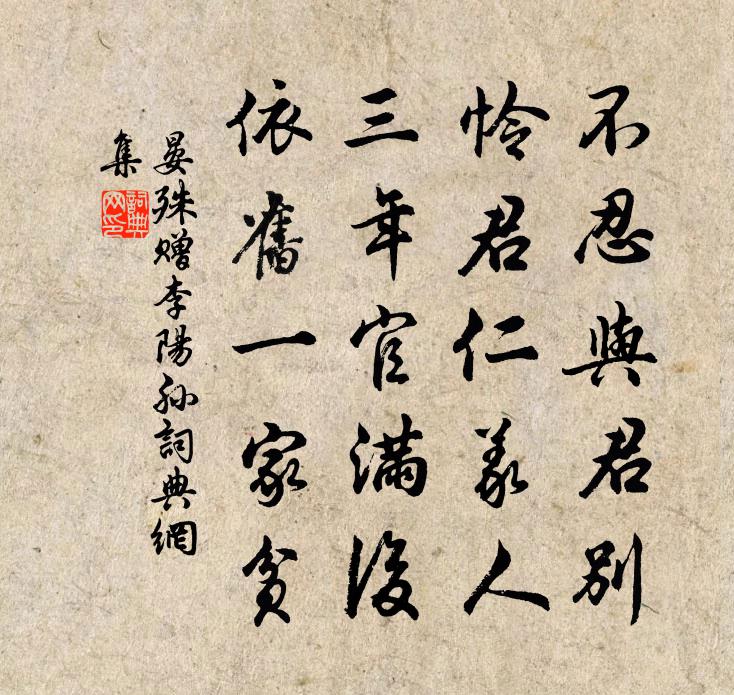 不忍與君別
憐君仁義人
三年官滿後
依舊一家貧
晏殊贈李陽孫詞典網
集
詞典
网印